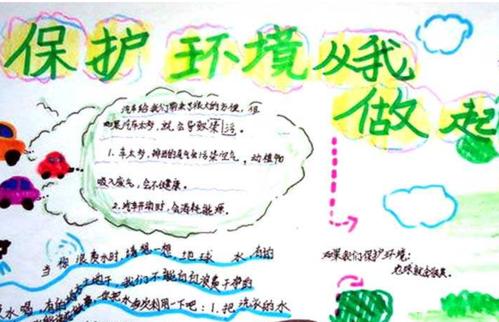 保护环境从我
做起
汽车给我们带来了很大的方便，但
如果汽车太多，就会导致染污。
1.车太多，排出的尾气会污染空气，动植物
吸入废气，会不健康。
2.汽车开动时，会消耗能源。
当你浪费水时，请想一想，地球 水，有的
如果我们保护环境：
地方 我们不能白白浪费干净的
水喝，有的 把水 利用一下吧：1.把洗衣的水
地球就会很美。